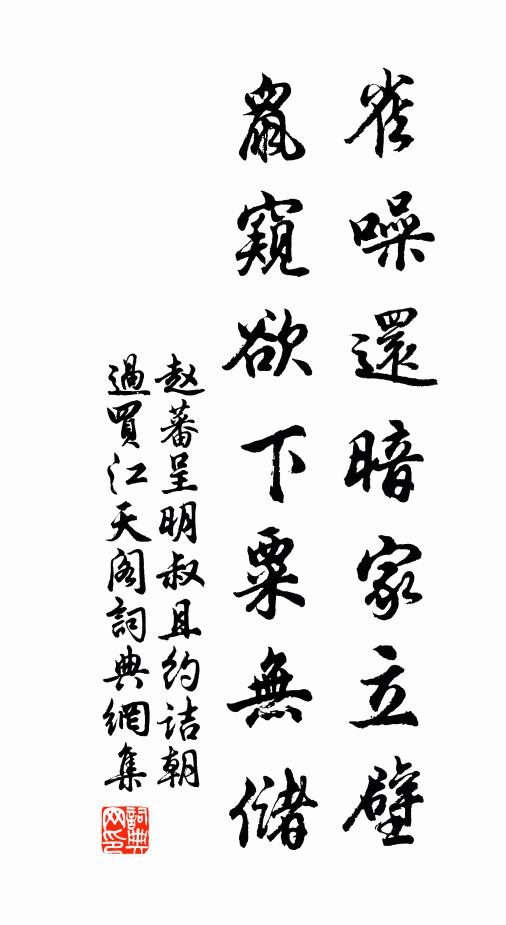 雀噪還暗家立壁
鼠窺欲下粟無儲
赵蕃呈明叔且约诘朝
過買江天阁詞典網集
詞典
网印